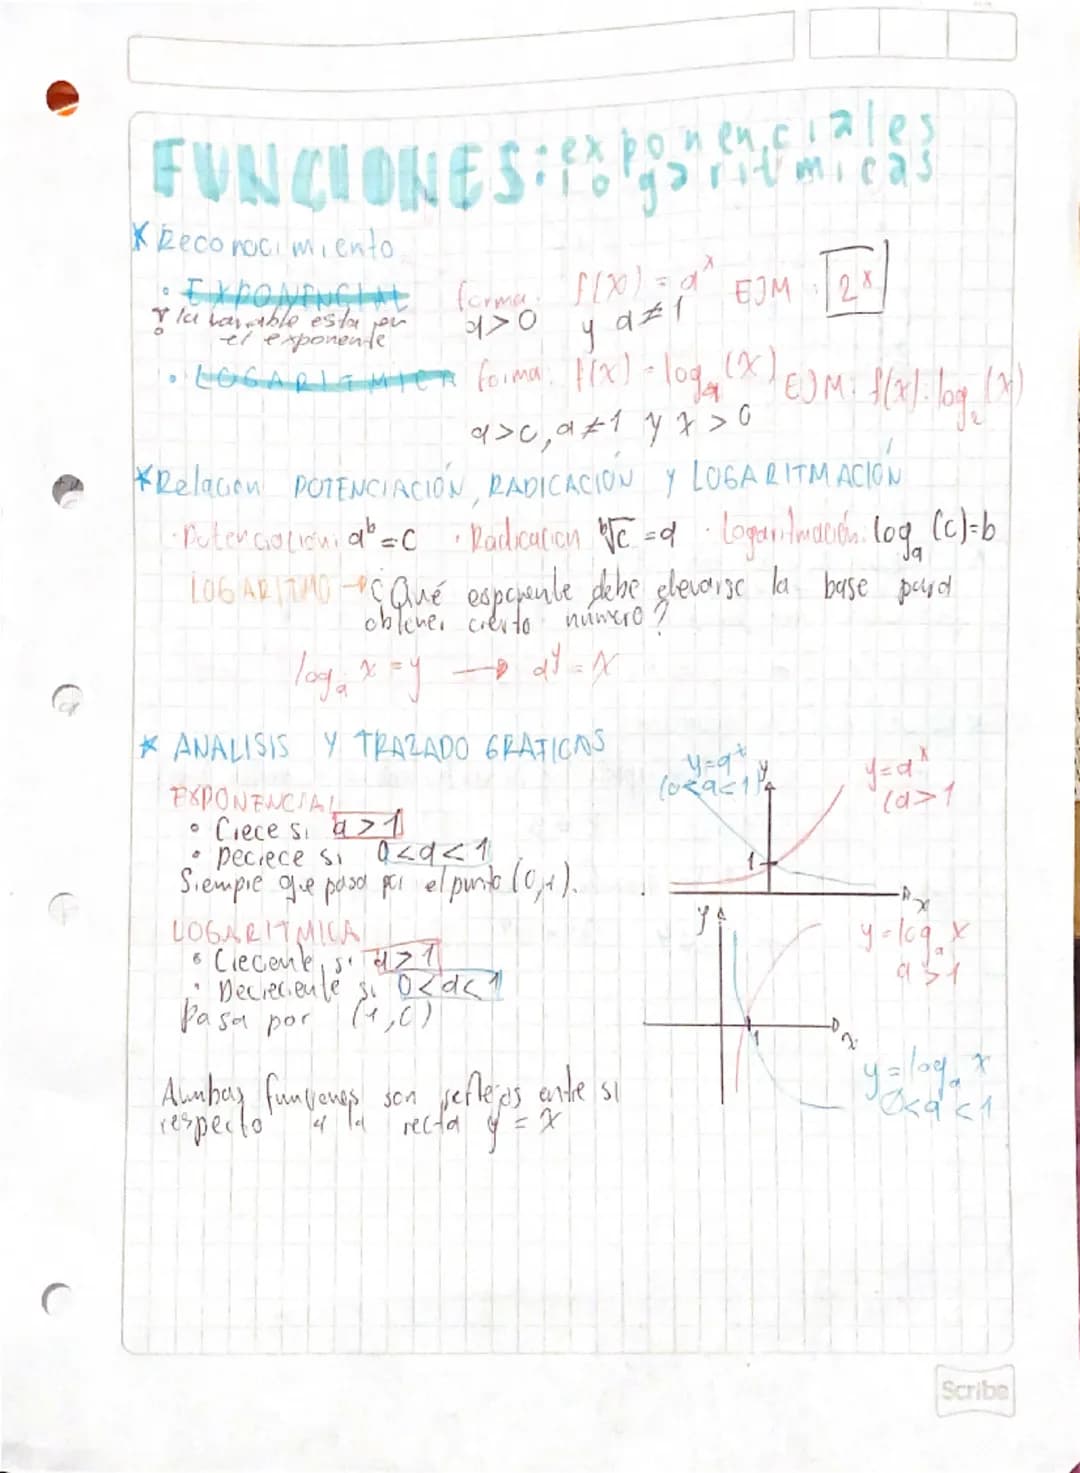 FUNCIONES: exponenciales
logaritmicas
* Reconocimiento
• EXPONENCIAL forma: f(x) = a^x EJM: 2^x
la variable esta en el exponente a>0 y a≠1
• LOGARITMICA forma: f(x) = log_a (x) EJM: f(x): log_2 (x)
a>0, a≠1 y x>0
* Relación POTENCIACIÓN, RADICACIÓN Y LOGARITMACIÓN
· Potenciación: a^b = c · Radicación ᵇ√c = a · Logaritmación: log_a (c)=b
LOGARITMO → ¿Qué esponente debe elevarse la base para
obtener cierto número?
log_a x = y → a^y = x
* ANALISIS Y TRAZADO GRAFICAS
EXPONENCIAL
• Crece si a > 1
• Decrece si 0<a<1
Siempre que pasa por el punto (0,1).
y=a^x
(0<a<1)
y
y=a^x
(a>1
1
x
LOGARITMICA
• Creciente si a>1
• Decreciente si 0<a<1
Pasa por (1,0)
y
y=log_a x
a>1
1
x
y=log_a x
0<a<1
Ambas funciones son reflejos entre si
respecto a la recta y = x
Scribe